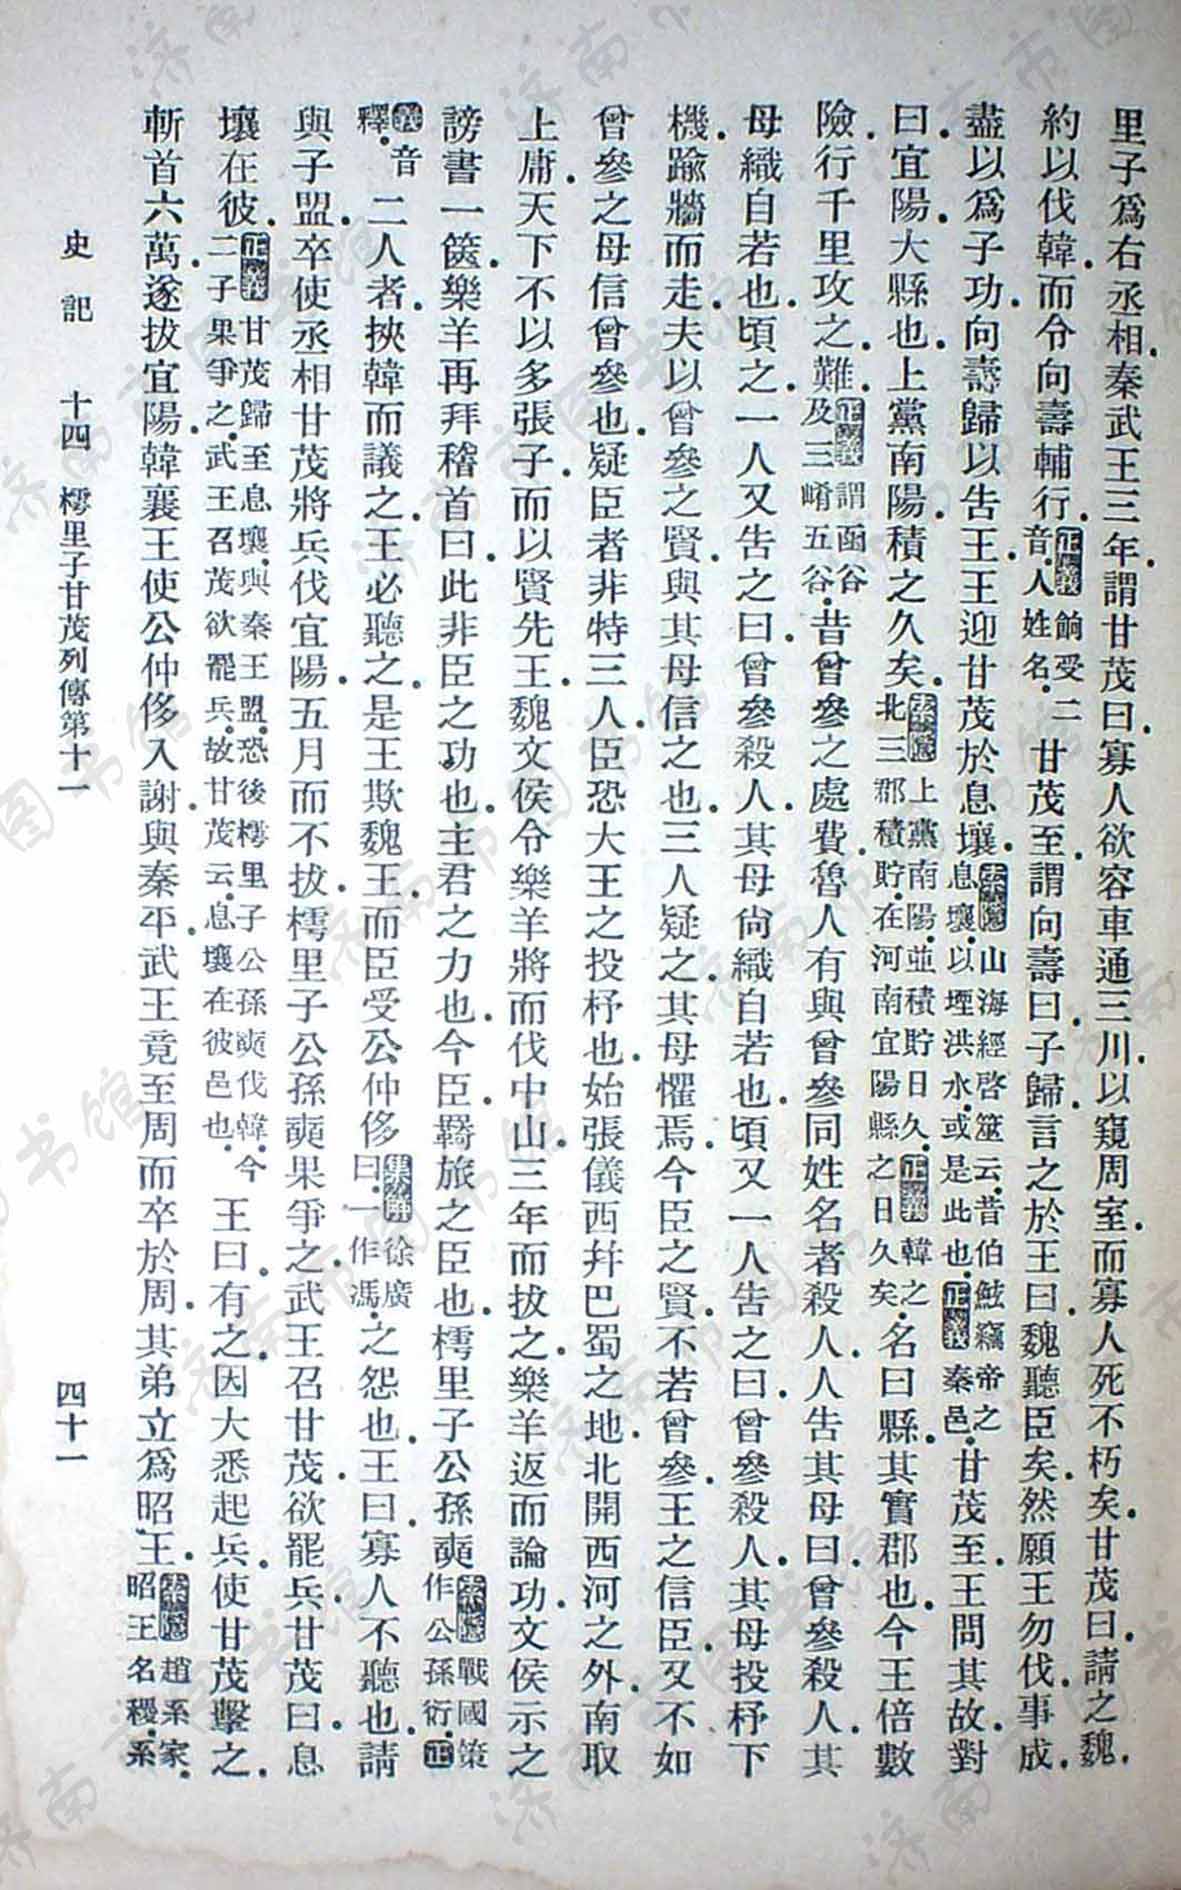 里子爲右丞相。秦武王三年。謂甘茂曰。寡人欲容車通三川。以窺周室。而寡人死不朽矣。甘茂曰。請之魏。
約以伐韓。而令向壽輔行。正義餉受二音。人姓名。甘茂至。謂向壽曰。子歸。言之於王曰。魏聽臣矣。然願王勿伐。事成。
盡以爲子功。向壽歸以告王。王迎甘茂於息壤。索隱山海經啓筮云。昔伯鯀竊帝之息壤。以堙洪水。或是此也。正義秦邑。甘茂至。王問其故。對
曰。宜陽。大縣也。上黨南陽。積之久矣。索隱上黨南陽。並積貯日久。北三郡積貯。在河南宜陽縣之日久矣。正義韓之名曰縣。其實郡也。今王倍數
險。行千里攻之。難。正義謂函谷及三崤五谷。昔曾參之處費。魯人有與曾參同姓名者殺人。人告其母曰。曾參殺人。其
母織自若也。頃之。一人又告之曰。曾參殺人。其母尙織自若也。頃又一人告之曰。曾參殺人。其母投杼下
機。踰牆而走。夫以曾參之賢。與其母信之也。三人疑之。其母懼焉。今臣之賢。不若曾參。王之信臣。又不如
曾參之母信曾參也。疑臣者非特三人。臣恐大王之投杼也。始張儀西幷巴蜀之地。北開西河之外。南取
上庸。天下不以多張子。而以賢先王。魏文侯令樂羊將而伐中山。三年而拔之。樂羊返而論功。文侯示之
謗書一篋。樂羊再拜稽首曰。此非臣之功也。主君之力也。今臣。羇旅之臣也。樗里子公孫奭索隱戰國策作公孫衍。正
義音釋。二人者。挾韓而議之。王必聽之。是王欺魏王。而臣受公仲侈集解徐廣曰。一作馮。之怨也。王曰。寡人不聽也。請
與子盟。卒使丞相甘茂將兵伐宜陽。五月而不拔。樗里子公孫奭果爭之。武王召甘茂。欲罷兵。甘茂曰。息
壤在彼。正義甘茂歸至息壤。與秦王盟。恐後樗里子公孫奭伐韓。今二子果爭之。武王召茂欲罷兵。故甘茂云。息壤在彼邑也。王曰。有之。因大悉起兵。使甘茂擊之。
斬首六萬。遂拔宜陽。韓襄王使公仲侈入謝。與秦平。武王竟至周而卒於周。其弟立爲昭王。索隱趙系家。昭王名稷。系
史記 十四 樗里子甘茂列傳第十一 四十一
济南市图书馆